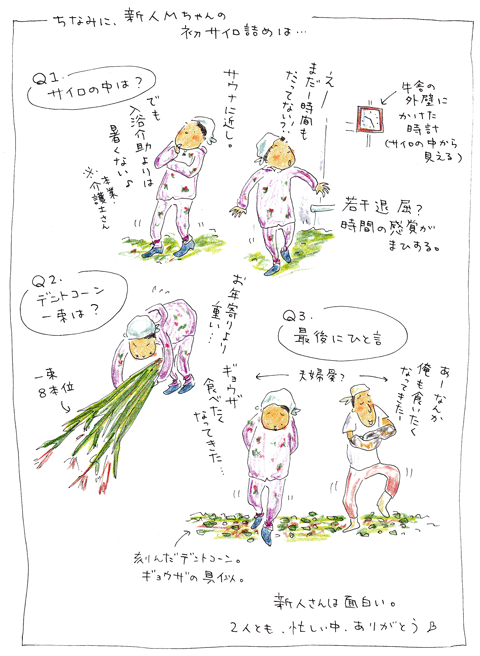 ちなみに、新人Mちゃんの
初サイロ詰めは…
Q1.
サイロの中は?
サウナに近し。
でも
入浴介助よりは
暑くない♪
※本業
介護士さん
えー
まだ一時間も
たってない!?
牛舎の
外壁に
かけた
時計
(サイロの中から
見える)
若干退屈?
時間の感覚が
まひする。
Q2.
デントコーン
一束は?
お年寄りより
重い…
一束
8本位
Q3.
最後にひと言
夫婦愛?
ギョウザ
食べたく
なってきた…
あーなんか
俺も食いたく
なってきたー
刻んだデントコーン。
ギョウザの具似。
新人さんは面白い。
2人とも、忙しい中、ありがとう